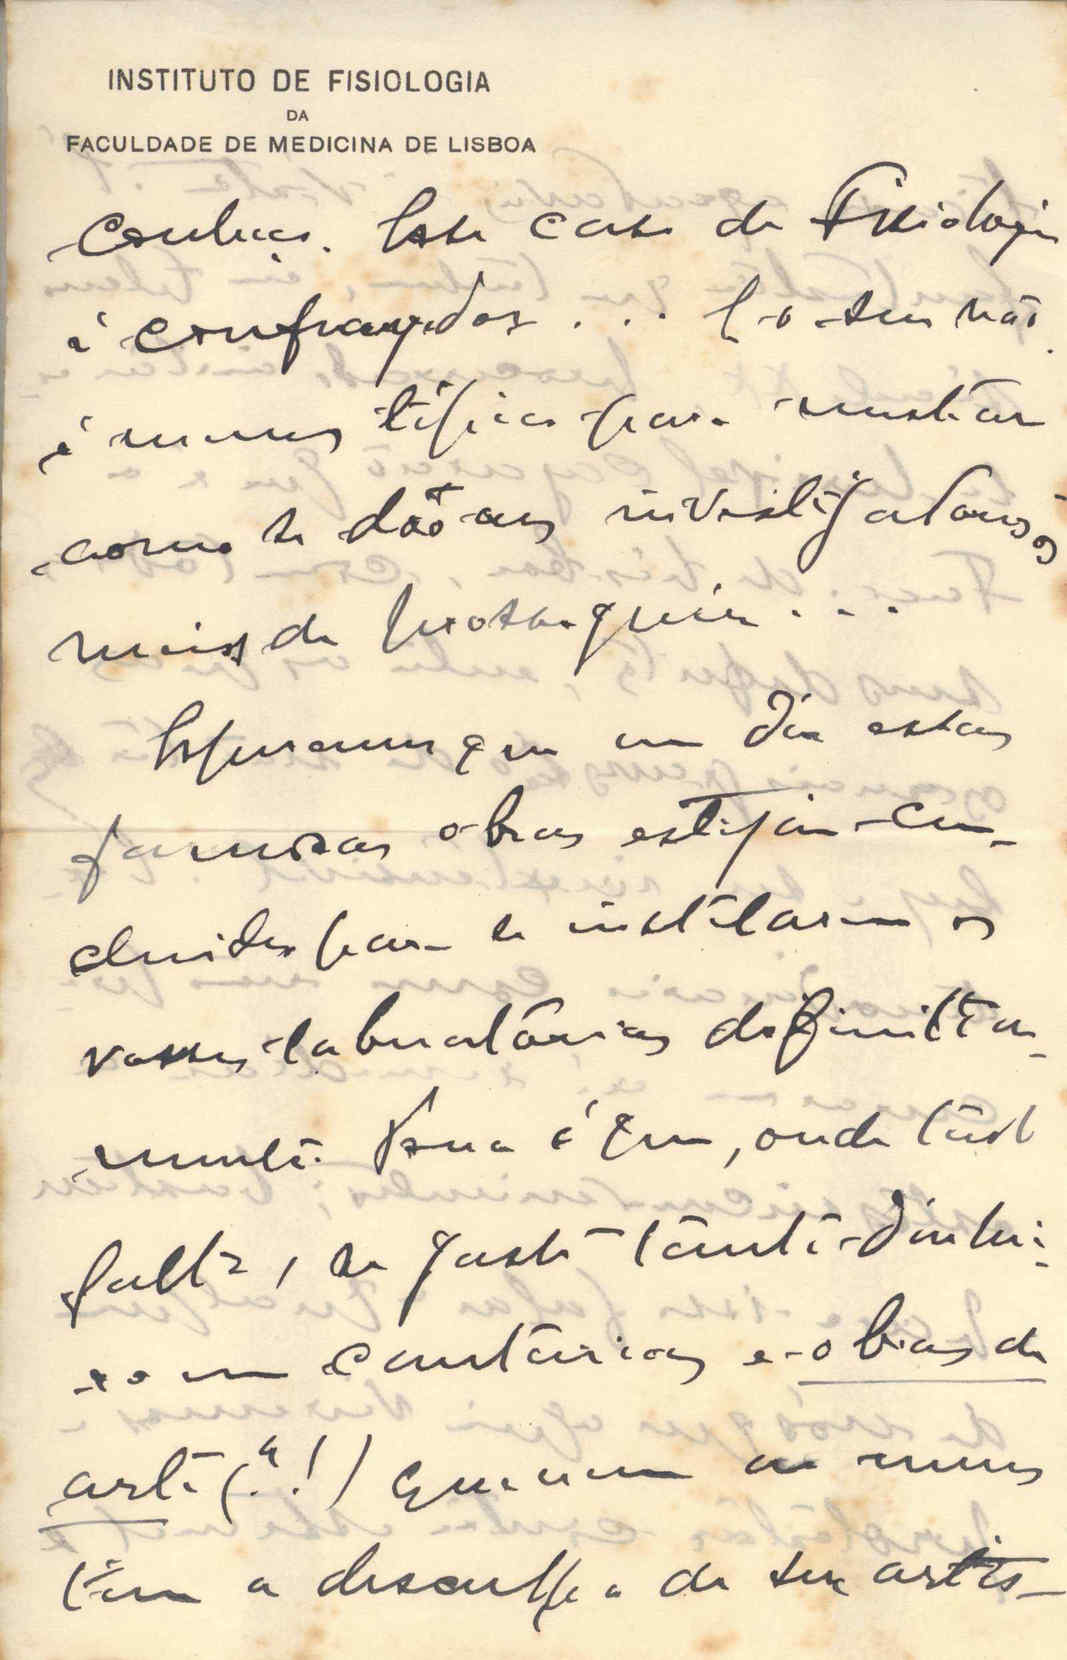 INSTITUTO DE FISIOLOGIA
DA
FACULDADE DE MEDICINA DE LISBOA
conheço. Esse caso da Fisiologia
é confrangedor... E o seu não
é menos típico para mostrar
como se dão aos investigadores os
meios de prosseguir...
Esperemos que um dia estas
famosas obras estejam con-
cluidas para se instalarem os
vossos laboratórios definitiva-
mente. Pena é que, onde tudo
falta, se gaste tanto dinhei-
ro em cantarias e obras de
arte (?!) que nem ao menos
têm a desculpa de ser artis-